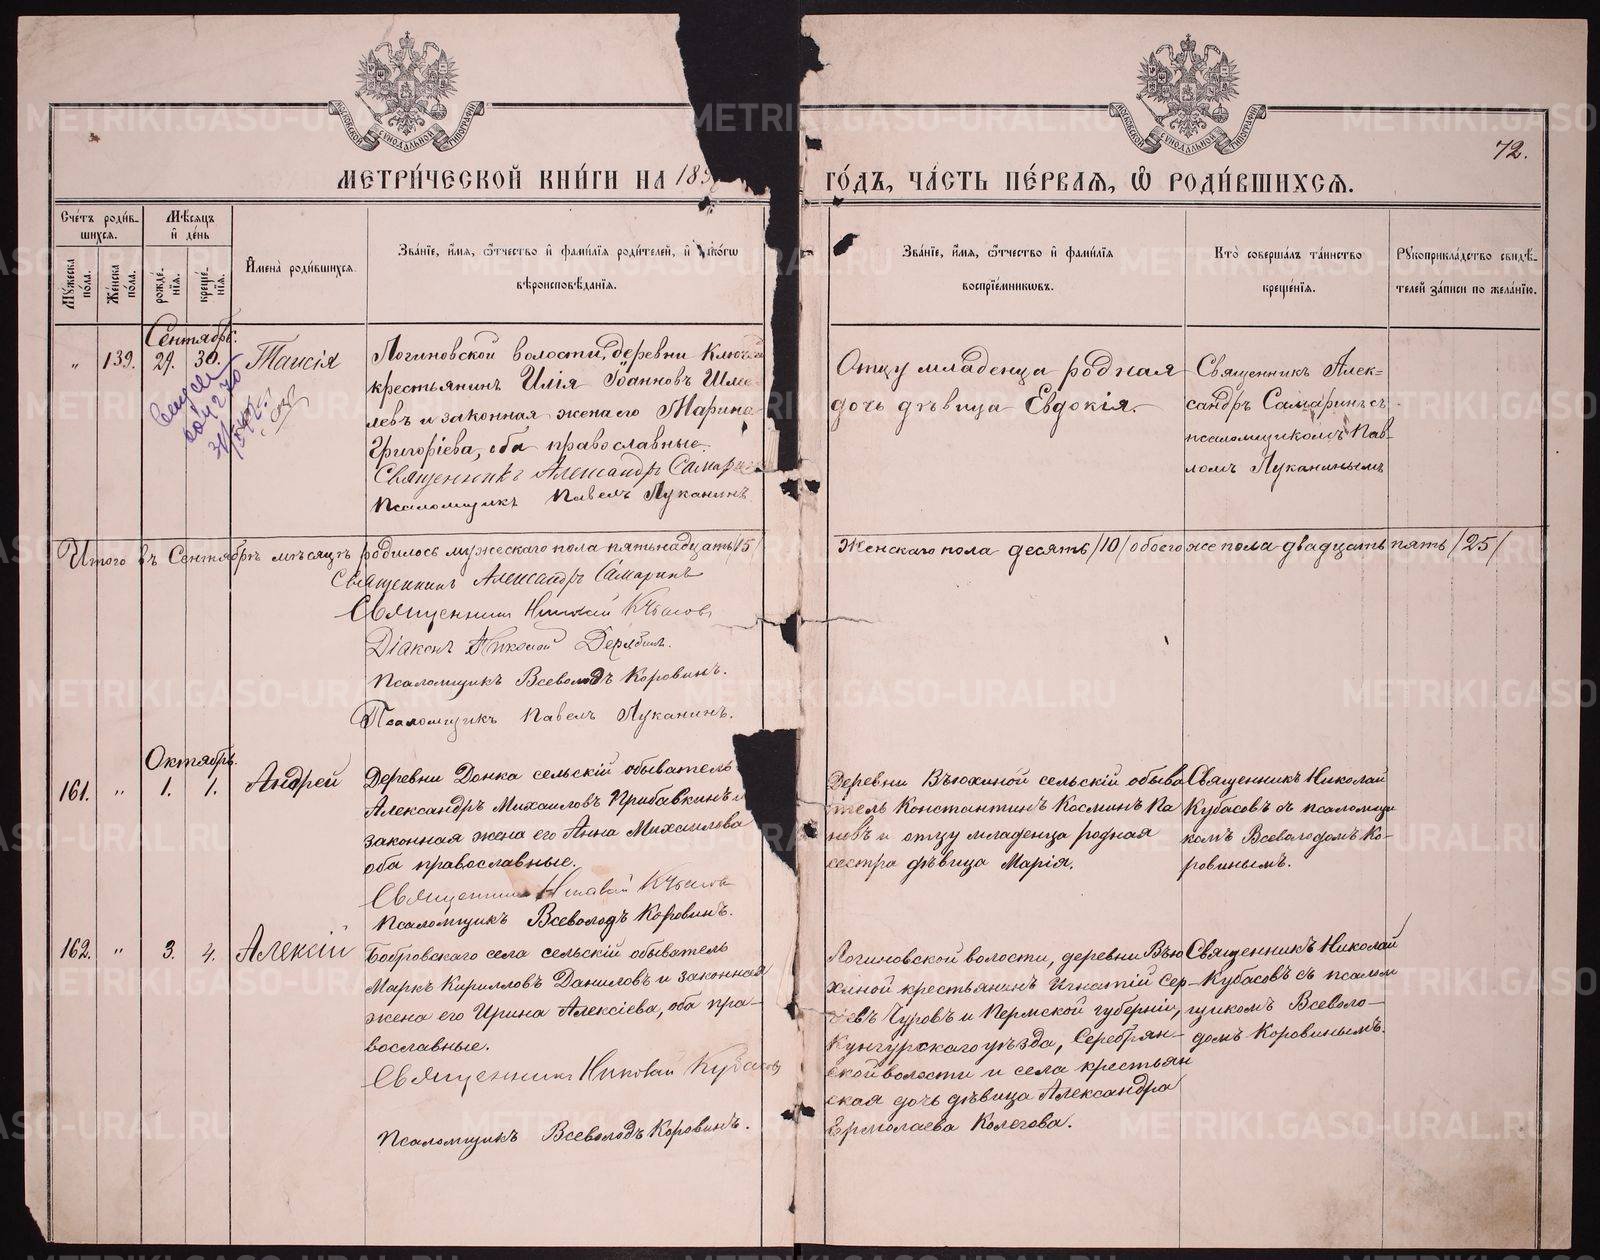 МЕТРИ́ЧЕСКОЙ КНИ́ГИ НА 189
ГО́ДЪ, ЧА́СТЬ ПЕ́РВАѦ, Ѽ РОДИ́ВШИХСѦ.
72.
Сче́тъ роди́в-
шихсѧ.
Мѣ́сѧцъ
и҆ де́нь
Мꙋ́жеска по́ла.
Же́нска по́ла.
рожде́-
нїѧ.
креще́-
нїѧ.
И҆мена̀ роди́вшихсѧ.
Зва́нїе, и҆́мѧ, ѻ҆́тчество и҆ фами́лїѧ роди́телей, и҆ како́гѡ
вѣроисповѣ́данїѧ.
Зва́нїе, и҆́мѧ, ѻ҆́тчество и҆ фами́лїѧ
воспрїе́мникѡвъ.
Кто̀ соверша́лъ та́инство
креще́нїѧ.
Рꙋкоприкла́дство свидѣ́-
телей за́писи по жела́нїю.
Сентябрь.
" 139. 29. 30. Таисія
Логиновской волости, деревни Ключ
крестьянинъ Илія Іоанновъ Шме
левъ и законная жена его Марина
Григоріева, оба православные.
Священникъ Александръ Самаринъ
Псаломщикъ Павелъ Луканинъ
Отцу младенца родная
дочь дѣвица Евдокія.
Священникъ Алек=
сандръ Самаринъ съ
псаломщикомъ Пав-
ломъ Луканинымъ
Итого въ Сентябрѣ мѣсяцѣ родилось мужескаго пола пятьнадцать /15/
женскаго пола десять /10/ обоего же пола двадцать пять /25/
Священникъ Александръ Самаринъ
Священникъ Николай Кубасовъ
Діаконъ Николай Дерябинъ.
Псаломщикъ Всеволодъ Коровинъ.
Псаломщикъ Павелъ Луканинъ.
Октябрь.
161. " 1. 1. Андрей
Деревни Донка сельскій обыватель
Александръ Михаиловъ Прибавкинъ и
законная жена его Анна Михаилова
оба православные.
Священникъ Николай Кубасовъ
Псаломщикъ Всеволодъ Коровинъ.
Деревни Вьюхиной сельскій обыва
тель Константинъ Косминъ Па
новъ и отцу младенца родная
сестра дѣвица Марія.
Священникъ Николай
Кубасовъ съ псаломщи
комъ Всеволодомъ Ко-
ровинымъ.
162. " 3. 4. Алексій
Бобровскаго села сельскій обыватель
Маркъ Кирилловъ Даниловъ и законная
жена его Ирина Алексіева, оба пра-
вославные.
Священникъ Николай Кубасовъ
Псаломщикъ Всеволодъ Коровинъ.
Логиновской волости, деревни Вью
хиной крестьянинъ Игнатій Сер-
евъ Чуровъ и Пермской губерніи,
Кунгурскаго уѣзда, Серебрян-
ской волости и села крестьян
ская дочь дѣвица Александра
Ермолаева Колегова.
Священникъ Николай
Кубасовъ съ псалом
щикомъ Всеволо-
домъ Коровинымъ.
METRIKI.GASO-URAL.RU